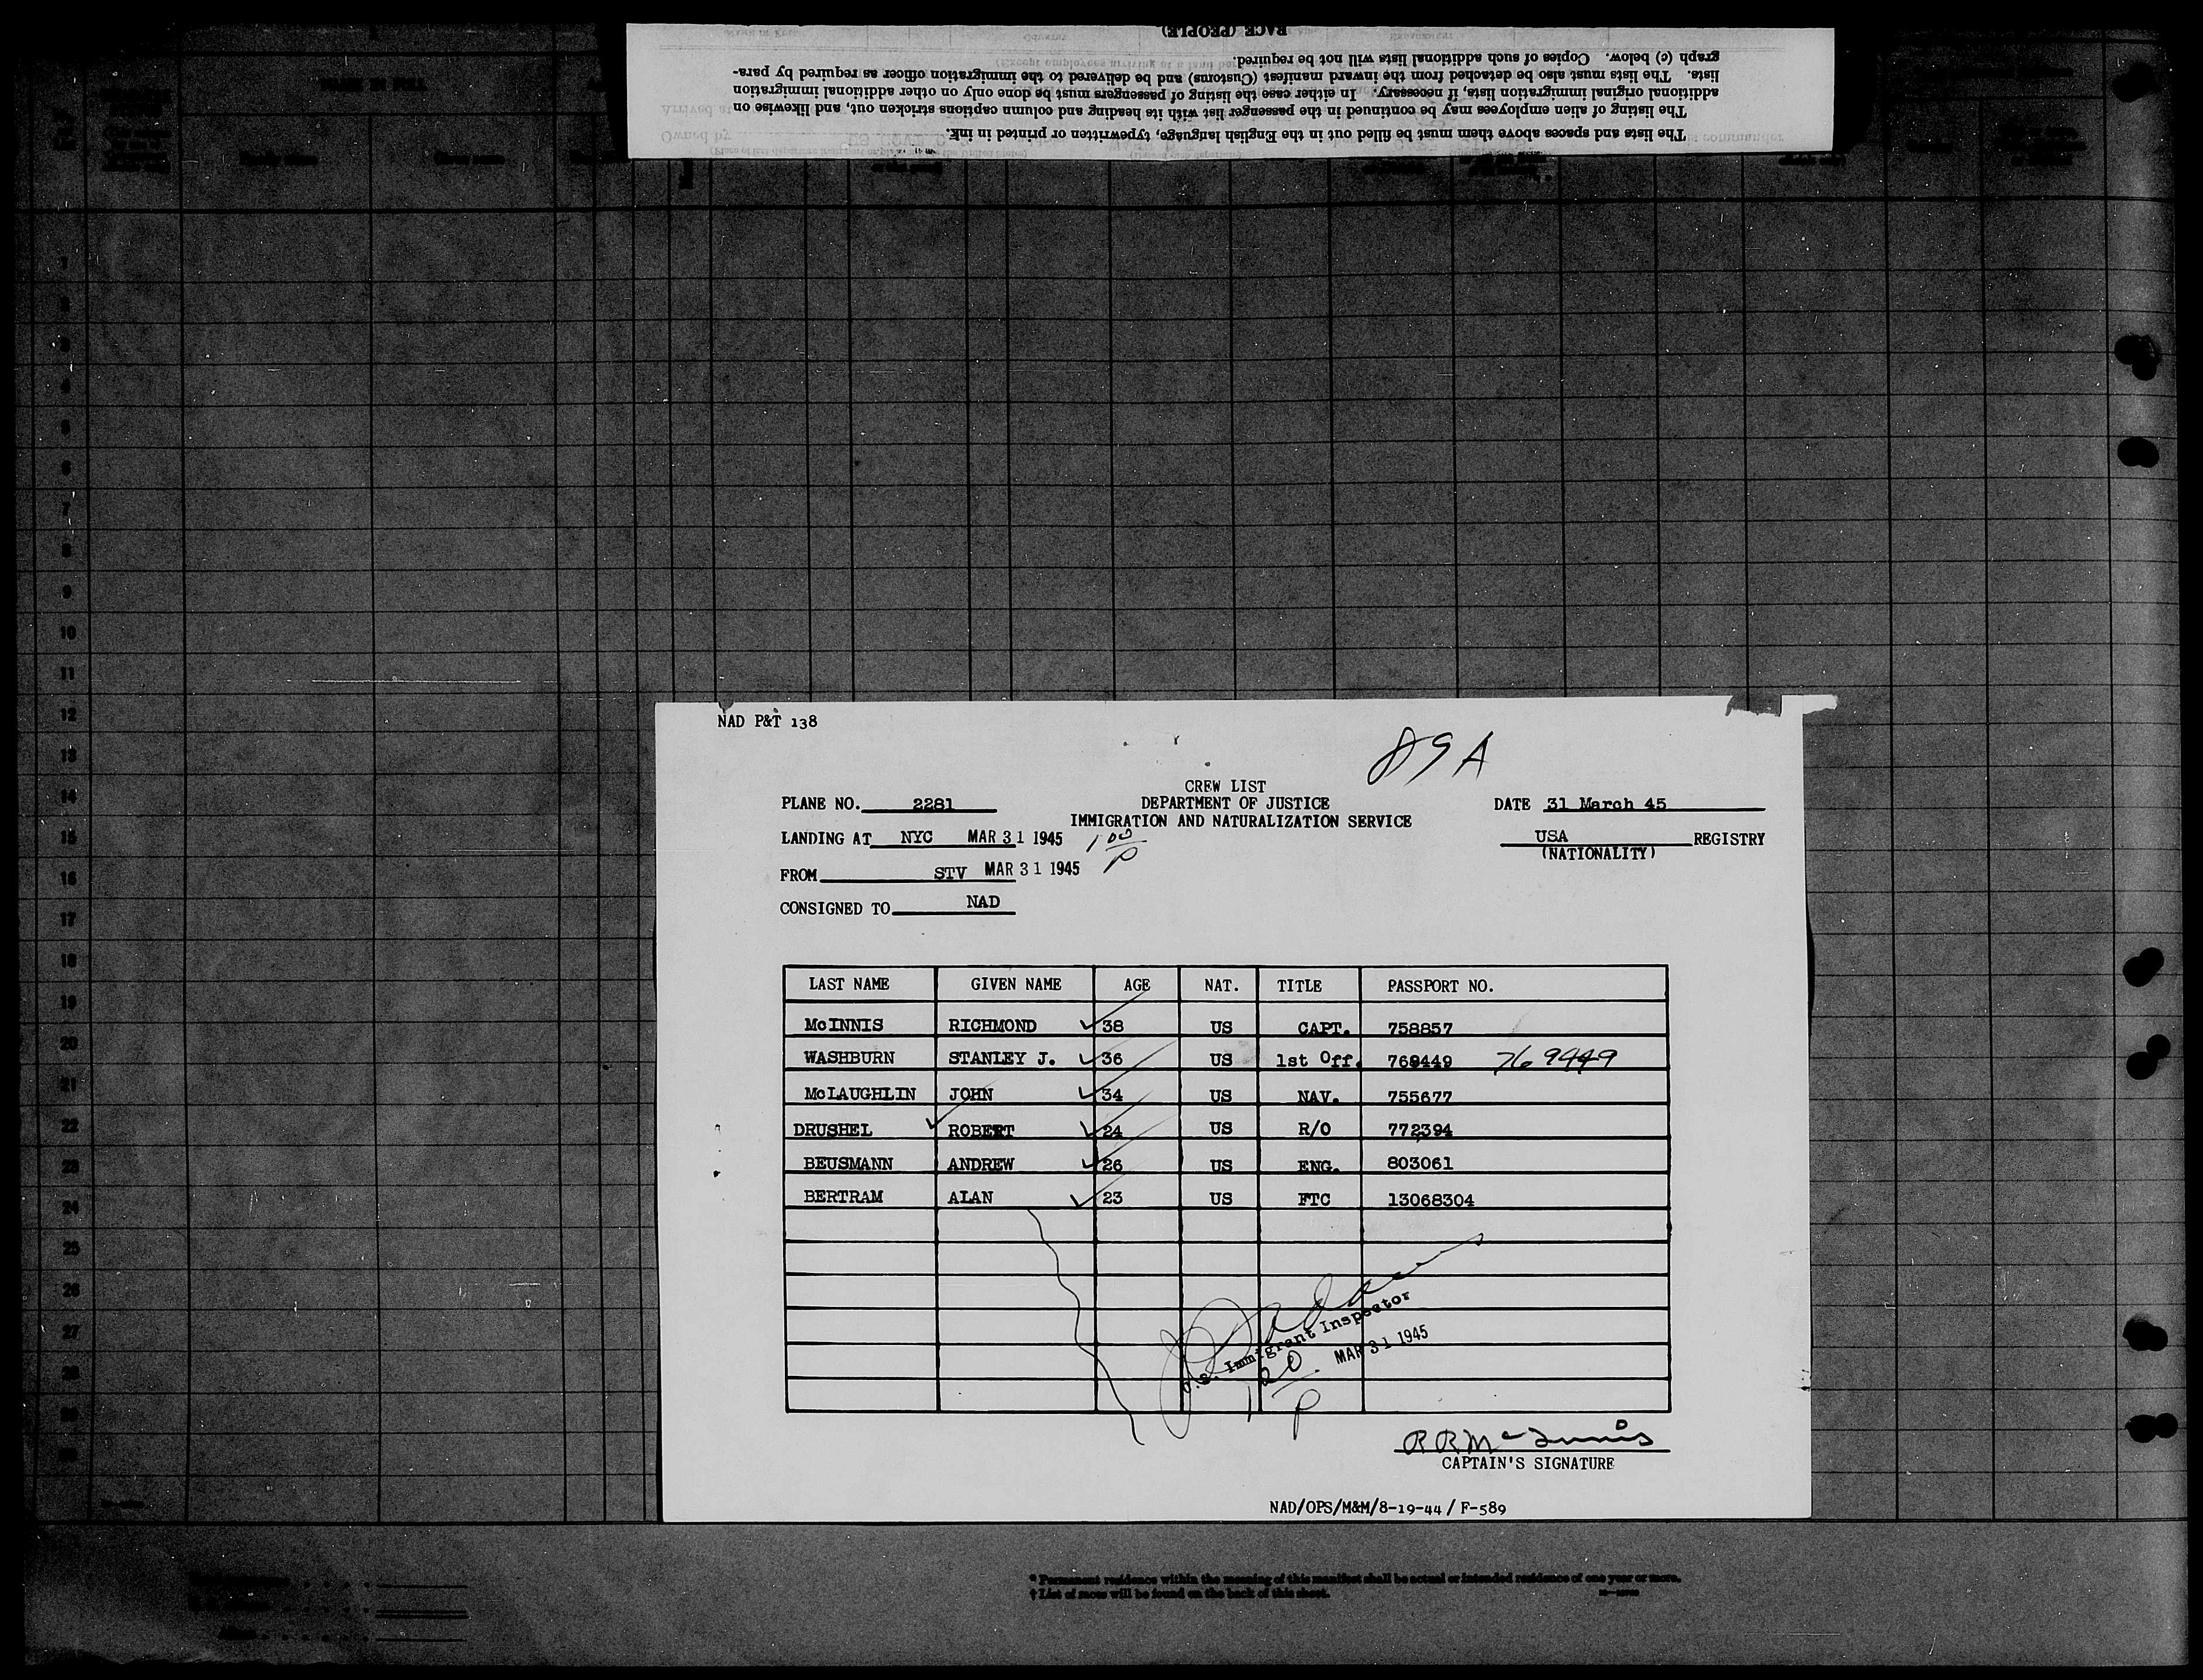 RACE (PEOPLE)
graph (c) below. Copies of such additional lists will not be required.
lists. The lists must also be detached from the inward manifest (Customs) and be delivered to the immigration officer as required by para-
additional original immigration lists, if necessary. In either case the listing of passengers must be done only on other additional immigration
The listing of alien employees may be continued in the passenger list with its heading and column captions stricken out, and likewise on
The lists and spaces above them must be filled out in the English language, typewritten or printed in ink.
Owned by
NAME IN FULL
1
2
3
4
5
6
7
8
9
10
11
12
13
14
15
16
17
18
19
20
21
22
23
24
25
26
27
28
29
30
NAD P&T 138
89A
CREW LIST
PLANE NO. 2281 DEPARTMENT OF JUSTICE DATE 31 March 45
IMMIGRATION AND NATURALIZATION SERVICE
LANDING AT NYC MAR 31 1945 1 00/P USA REGISTRY
(NATIONALITY)
FROM STV MAR 31 1945
CONSIGNED TO NAD
LAST NAME GIVEN NAME AGE NAT. TITLE PASSPORT NO.
McINNIS RICHMOND 38 US CAPT. 758857
WASHBURN STANLEY J. 36 US 1st Off. 768449 769449
McLAUGHLIN JOHN 34 US NAV. 755677
DRUSHEL ROBERT 24 US R/O 772394
BEUSMANN ANDREW 26 US ENG. 803061
BERTRAM ALAN 23 US FTC 13068304
U.S. Immigrant Inspector
MAR 31 1945
1 20/P
R R McInnis
CAPTAIN'S SIGNATURE
NAD/OPS/M&M/8-19-44 / F-589
* Permanent residence within the meaning of this manifest shall be actual or intended residence of one year or more.
† List of races will be found on the back of this sheet.